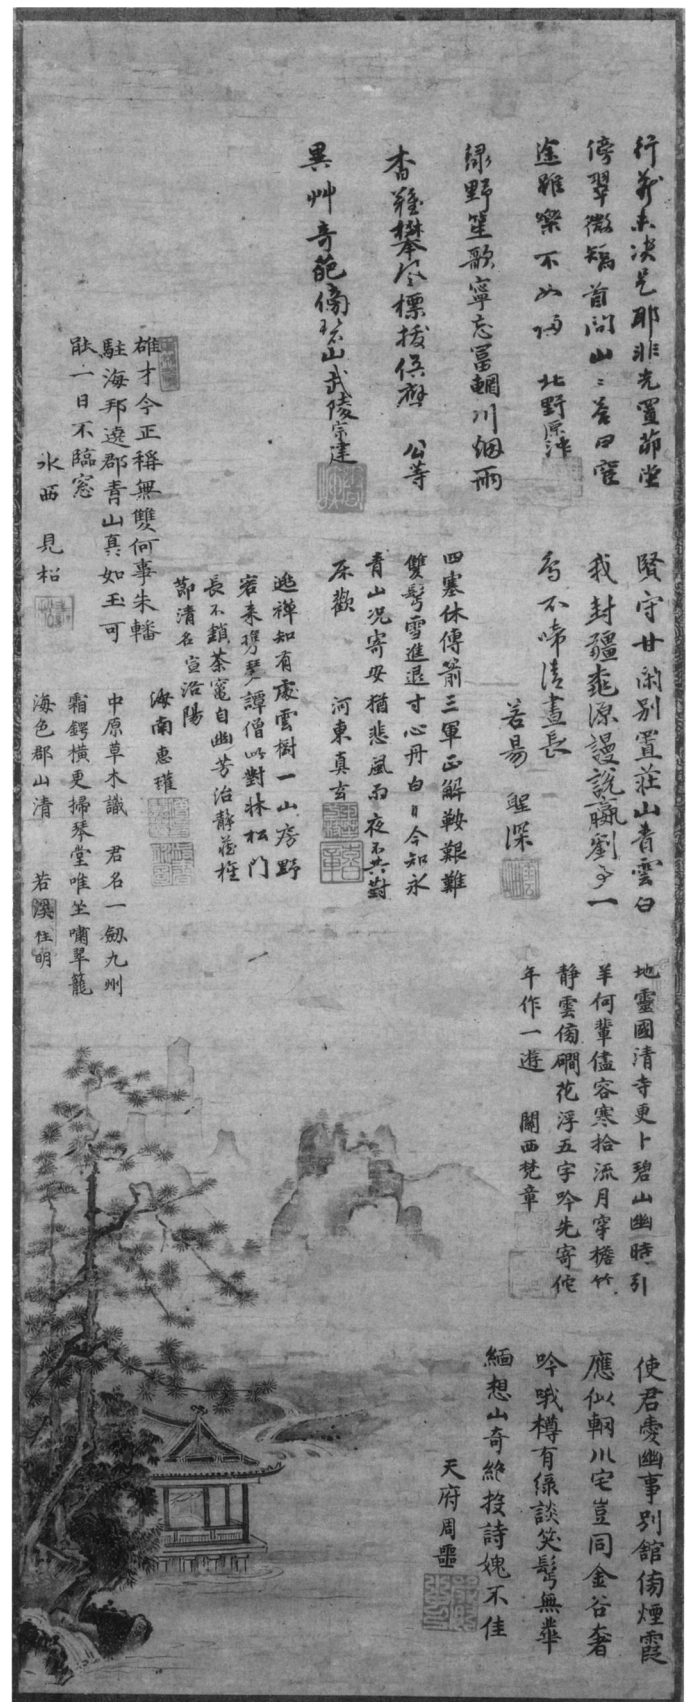 行藏未决是耶非先置茆堂
傍翠微矯首問山〻答曰宦
途雖樂不如歸 北野
緑野笙歌寧忘冨輞川烟雨
杳難攀風標拔俗 公等
異艸奇葩傍碧山武陵宗建
賢守甘閑別置莊山青雲白
我封疆桃源謾説嬴劉事一
鳥不啼清晝長
若昜 聖深
四塞休傳箭三軍正解鞍艱難
雙髩雪進退寸心丹白日今知永
青山况寄安猶悲風雨夜不共對
床歡 河東真玄
逃禅知有處雲樹一山房野
客来携琴譚僧此對牀松門
長不鎖茶竈自幽芳治静花権
節清名宣洛陽
海南惠瓘
雄才今正稱無雙何事朱轓
駐海邦遶郡青山真如玉可
耐一日不臨窓
氷西 見
中原草木識 君名一劔九州
霜鍔横更掃琴堂唯坐嘯翠籠
海色郡山清 若
地靈國清寺更卜碧山幽時引
羊何輩儘容寒拾流月穿檐竹
静雲傍磵花浮五字吟先寄佗
年作一遊 關西梵章
使君愛幽事別舘傍煙霞
應似輞川宅豈同金谷奢
吟哦樽有緑談笑髩無華
緬想山奇絶投詩媿不佳
天府周噩